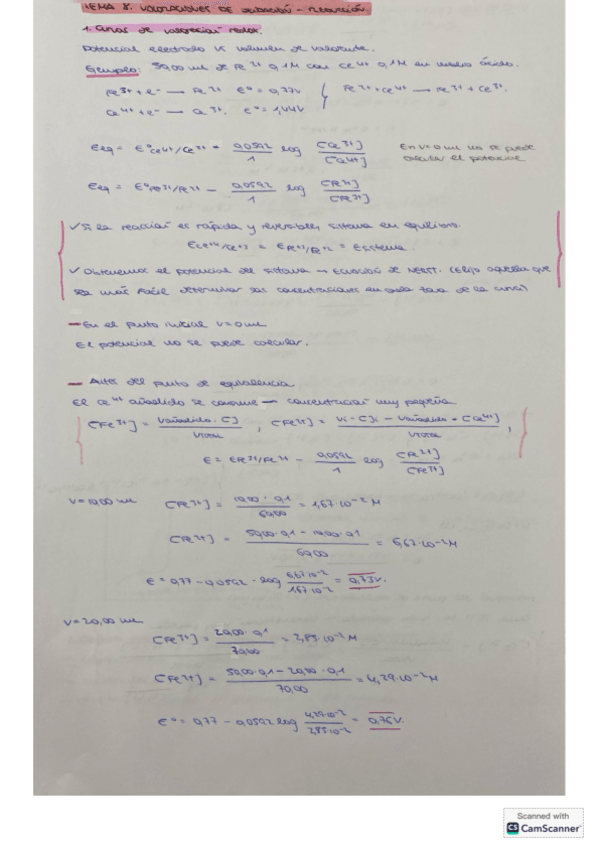 TEMA 8. VALORACIONES DE OXIDACIÓN - REDUCCIÓN.
1. Curvas de valoración redox.
Potencial electrodo vs volumen de valorante.
Ejemplo: 50,00 mL de Fe2+ 0,1M con Ce4+ 0,1M en medio ácido.
Fe3+ + e- → Fe2+ E° = 0,77V Fe2+ + Ce4+ → Fe3+ + Ce3+.
Ce4+ + e- → Ce3+. E° = 1,44V
Eeq = E°Ce4+/Ce3+ - 0,0592/1 log [Ce3+]/[Ce4+] En V=0 mL no se puede calcular el potencial
Eeq = E°Fe3+/Fe2+ - 0,0592/1 log [Fe2+]/[Fe3+]
✓ Si la reacción es rápida y reversible, sistema en equilibrio.
ECe4+/Ce3+ = EFe3+/Fe2+ = Esistema.
✓ Obtenemos el potencial del sistema → Ecuación de NERST. (Elijo aquella que
sea más fácil determinar las concentraciones en cada zona de la curva)
- En el punto inicial V=0 mL
El potencial no se puede calcular.
- Antes del punto de equivalencia
El Ce4+ añadido se consume → concentración muy pequeña
[Fe3+] = Vañadido · C]/Vtotal , [Fe2+] = Vi · C]i - Vañadido · [Ce4+]/Vtotal ,
E = EFe3+/Fe2+ - 0,0592/1 log [Fe2+]/[Fe3+]
V=10,00 mL [Fe3+] = 10,00 · 0,1/60,00 = 1,67·10-2 M
[Fe2+] = 50,00·0,1 - 10,00·0,1/60,00 = 6,67·10-2 M
E = 0,77 - 0,0592 · log 6,67·10-2/1,67·10-2 = 0,73V.
V=20,00 mL
[Fe3+] = 20,00 · 0,1/70,00 = 2,85·10-2 M
[Fe2+] = 50,00·0,1 - 20,00·0,1/70,00 = 4,29·10-2 M
E° = 0,77 - 0,0592 log 4,29·10-2/2,85·10-2 = 0,76V.
Scanned with
CS CamScanner